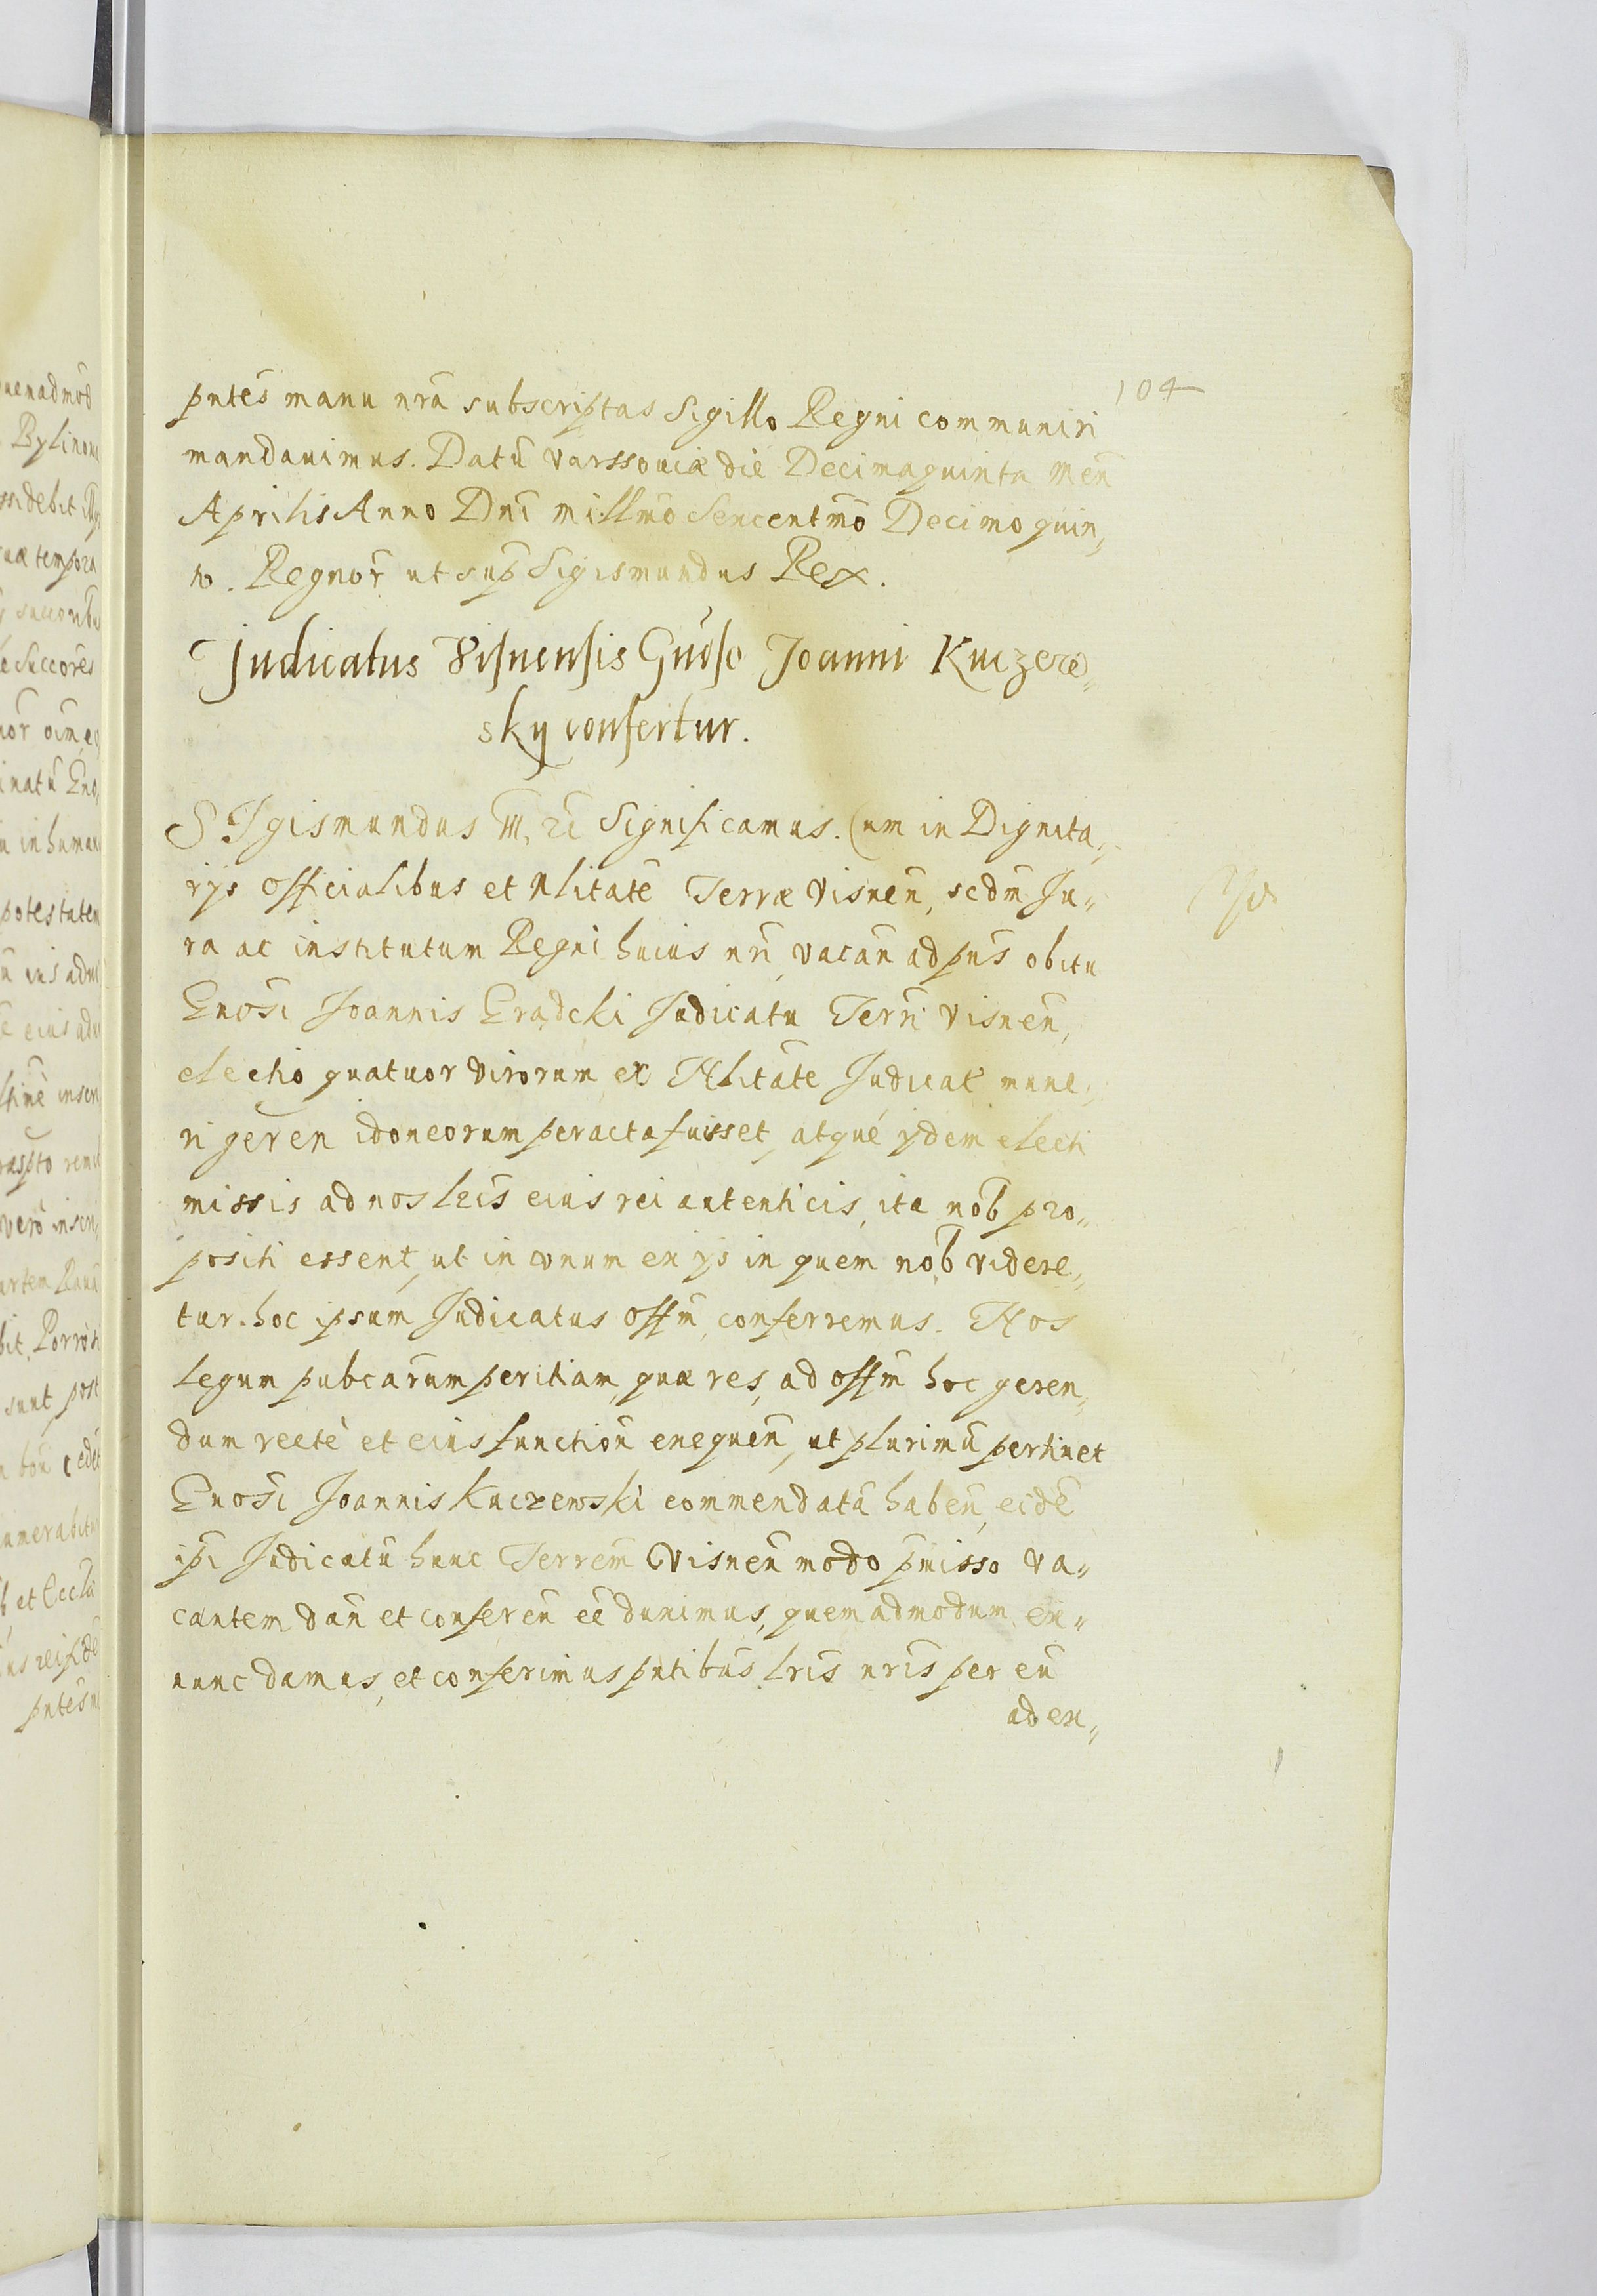 104
pntes manu nrã subscriptas Sigillo Regni communiri
mandauimus. Datũ varssouiæ die Decimaquinta Meñ
Aprilis Anno Dñi millmõ Sexcentmõ Decimo quin„
to. Regnor̃ ut sup Sigismundus Rex.
Judicatus Visnensis Gñoso Joanni Kuczew„
sky confertur.
SIgismundus III, zc̃ Significamus. Cum in Dignita„
rijs officialibus et Nlitatẽ Terræ Visneñ, scdm̃ Ju„
ra ac institutum Regni huius nrĩ, vacañ ad pñs obitu
Gnosĩ Joannis Gradcki Judicatu Terrĩ visneñ,
electio quatuor virorum ex Nlitãte Judicat mune„
ri gereñ idoneorum peracta fuisset, atque ydem electi
missis ad nos lrĩs eius rei autenticis, ita nob pro„
positi essent, ut in unum ex ijs in quem nob videre„
tur. hoc ipsum Judicatus offm̃, conferremus. Nos
legum pubcarum peritiam, quæ res, ad offm̃ hoc geren„
dum rectè et eius functioñ exequeñ, ut plurimũ pertinet
Gnosĩ Joannis Kuczewski commendatã habeñ, eidẽ
ipĩ Judicatũ hunc Terrem̃ Visneñ modo pm̃isso va„
cantem dañ et confereñ eẽ duximus, quemadmodum ex„
nunc damus, et conferimus pñtibus lrĩs nrĩs per eũ
ad ex„